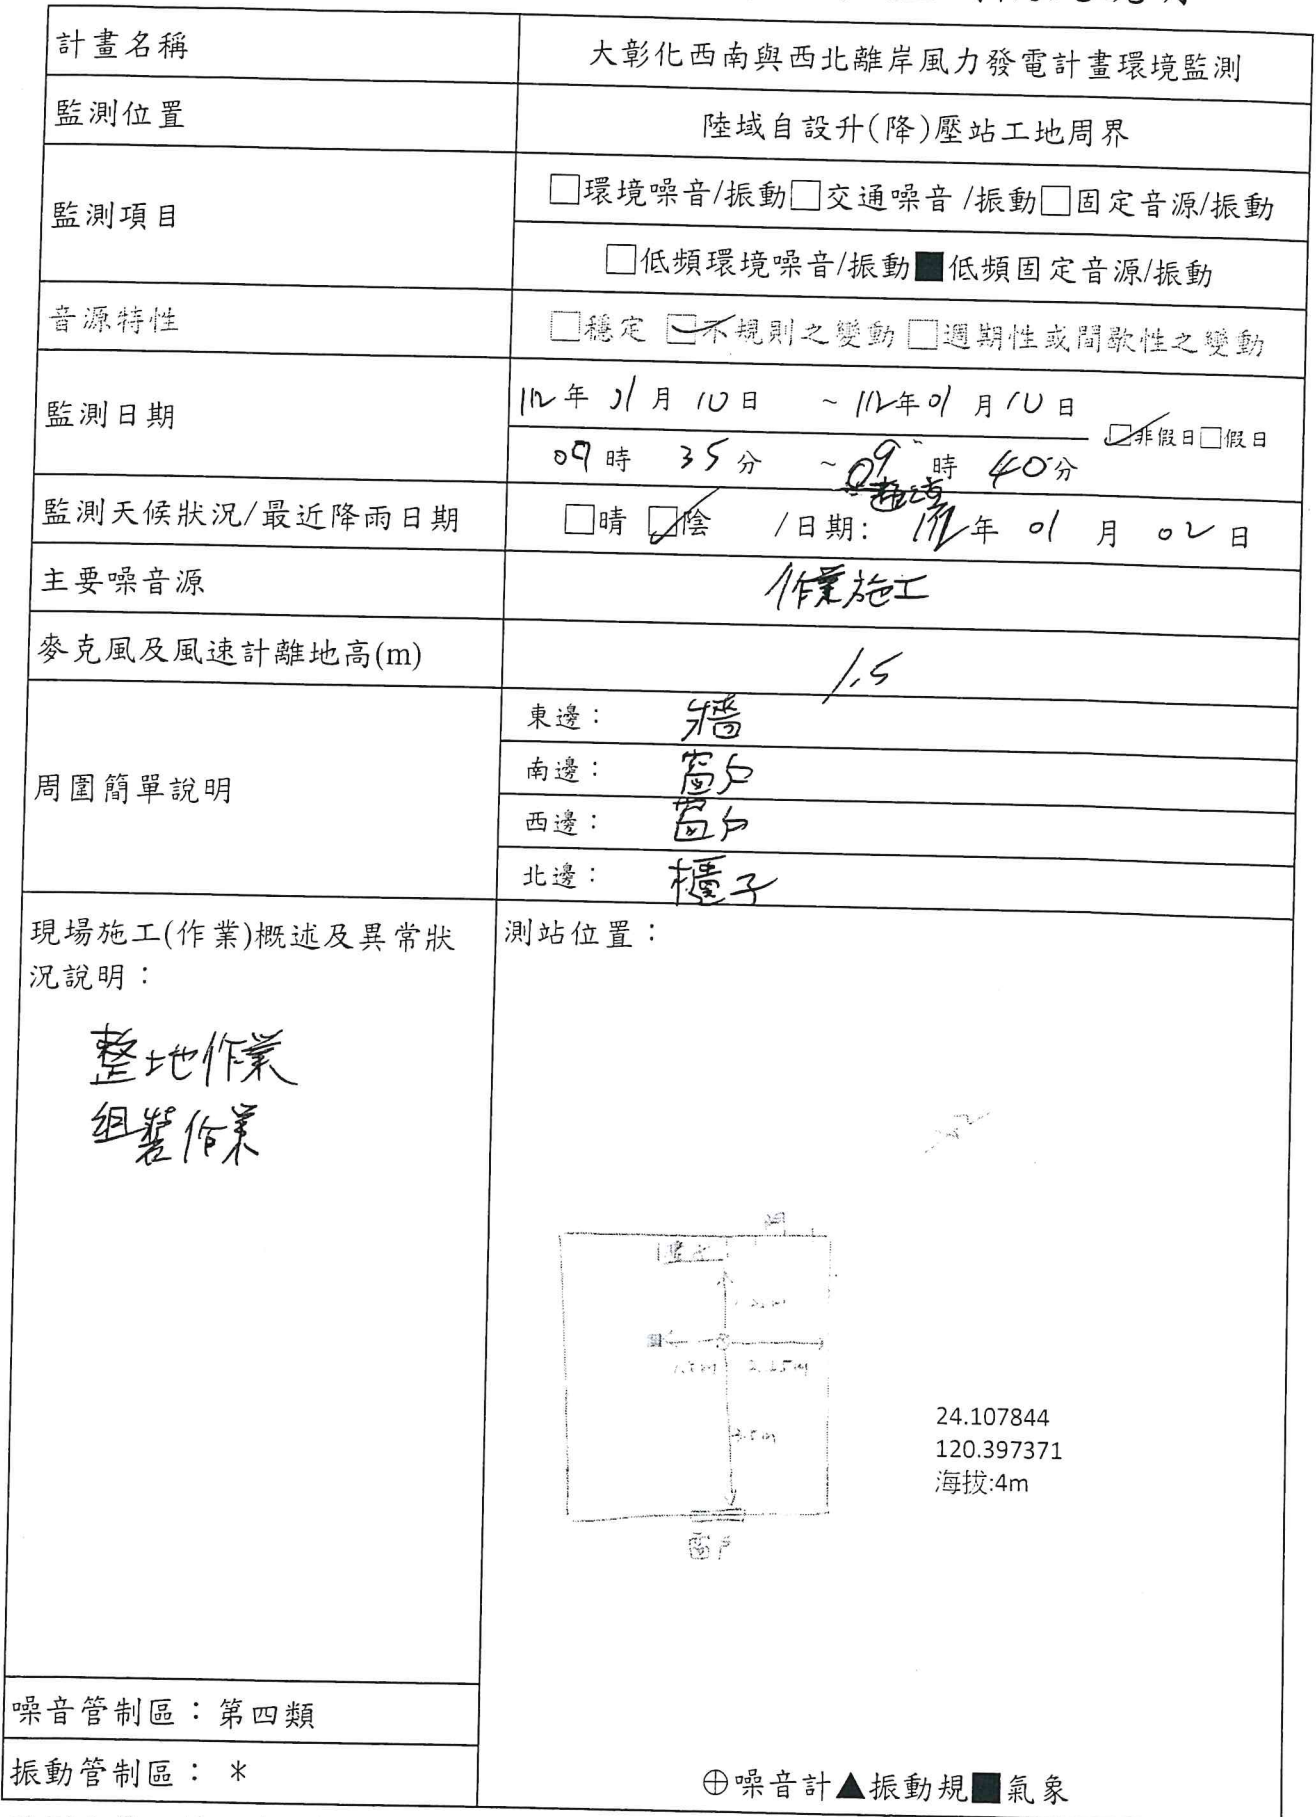 計畫名稱
大彰化西南與西北離岸風力發電計畫環境監測
監測位置
陸域自設升(降)壓站工地周界
監測項目
□環境噪音/振動□交通噪音 /振動□固定音源/振動
□低頻環境噪音/振動■低頻固定音源/振動
音源特性
□穩定 ☑不規則之變動 □週期性或間歇性之變動
監測日期
112年 01月 10日 ~ 112年 01月 10日
☑非假日□假日
09時 35分 ~ 09時 40分
監測天候狀況/最近降雨日期
□晴 ☑陰 /日期: 112年 01月 02日
主要噪音源
作業施工
麥克風及風速計離地高(m)
1.5
周圍簡單說明
東邊： 牆
南邊： 窗戶
西邊： 窗戶
北邊： 櫃子
現場施工(作業)概述及異常狀
況說明：
整地作業
組裝作業
測站位置：
24.107844
120.397371
海拔:4m
窗戶
噪音管制區：第四類
振動管制區： *
⊕噪音計▲振動規■氣象